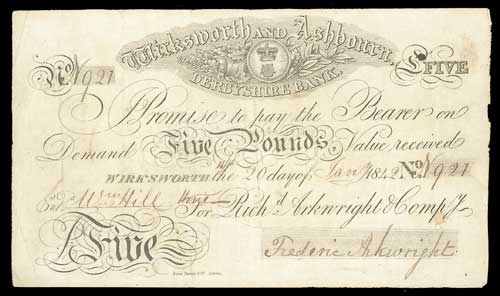 Wirksworth AND Ashbourn
DERBYSHIRE BANK.
No. N921 £FIVE
I Promise to pay the Bearer on
Demand Five Pounds Value received
WIRKSWORTH the 20 day of Jany 1842 No. N921
Entd. Wm Hill For Richd. Arkwright & Compy.
£Five
Frederic Arkwright